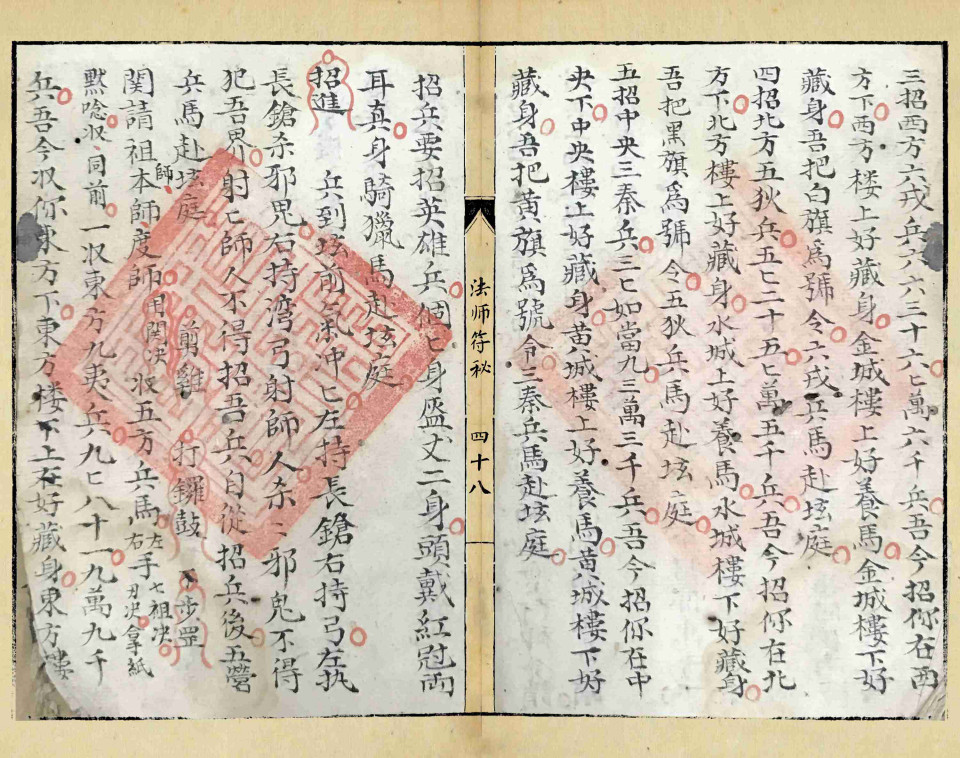 三招西方六戎兵六六三十六七萬六千兵吾今招你在西
方下西方楼上好藏身金城樓上好養馬金城樓下好
藏身吾把白旗爲號令六戎兵馬赴垓庭
四招北方五狄兵五七二十五七萬五千兵吾今招你在北
方下北方樓上好藏身水城上好養馬水城樓下好藏身
吾把黑旗爲號令五狄兵馬赴垓庭
五招中央三秦兵三匕如當九三萬三千兵吾今招你在中
央下中央樓上好藏身黄城樓上好養馬黄城樓下好
藏身吾把黄旗爲號令三秦兵馬赴垓庭
法师符秘 四十八
招兵要招英雄兵個匕身盔丈二身頭戴紅慰両
耳真身騎獵馬赴垓庭
招進 兵到垓前氣冲匕左持長鎗右持弓左执
長鎗杀邪鬼右持湾弓射師人杀二邪鬼不得
犯吾界射匕師人不得招吾兵自從招兵後五營
兵馬赴垓庭 剪雞 打鑼鼓 下步罡
関請祖本師度師 師 用関决 収五方兵馬 左右手 七祖决刀决拿紙
黙唸収 同前 一収東方九夷兵九匕八十一九萬九千
兵吾今収你東方下東方楼下上在好藏身東方樓